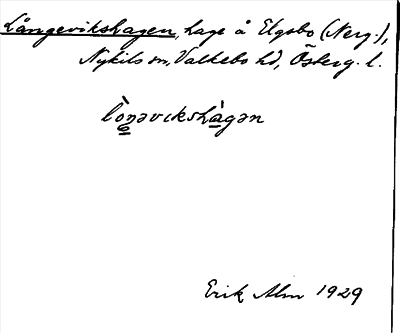 Långevikshagen, hage å Elgsbo (Nerg.),
Nykils sn, Valkebo hd, Österg. l.
lòŋəvɪkshàgən
Erik Alm 1929